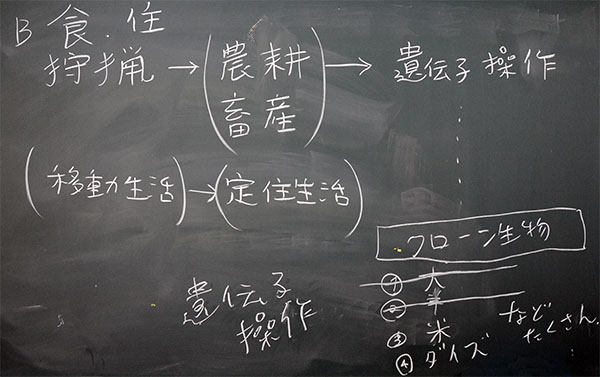 B 食・住
狩猟→(農耕 畜産)→遺伝子操作
(移動生活)→(定住生活)
クローン生物
① 犬
② 羊
③ 米
④ ダイズ
など
たくさん.
遺伝子
操作